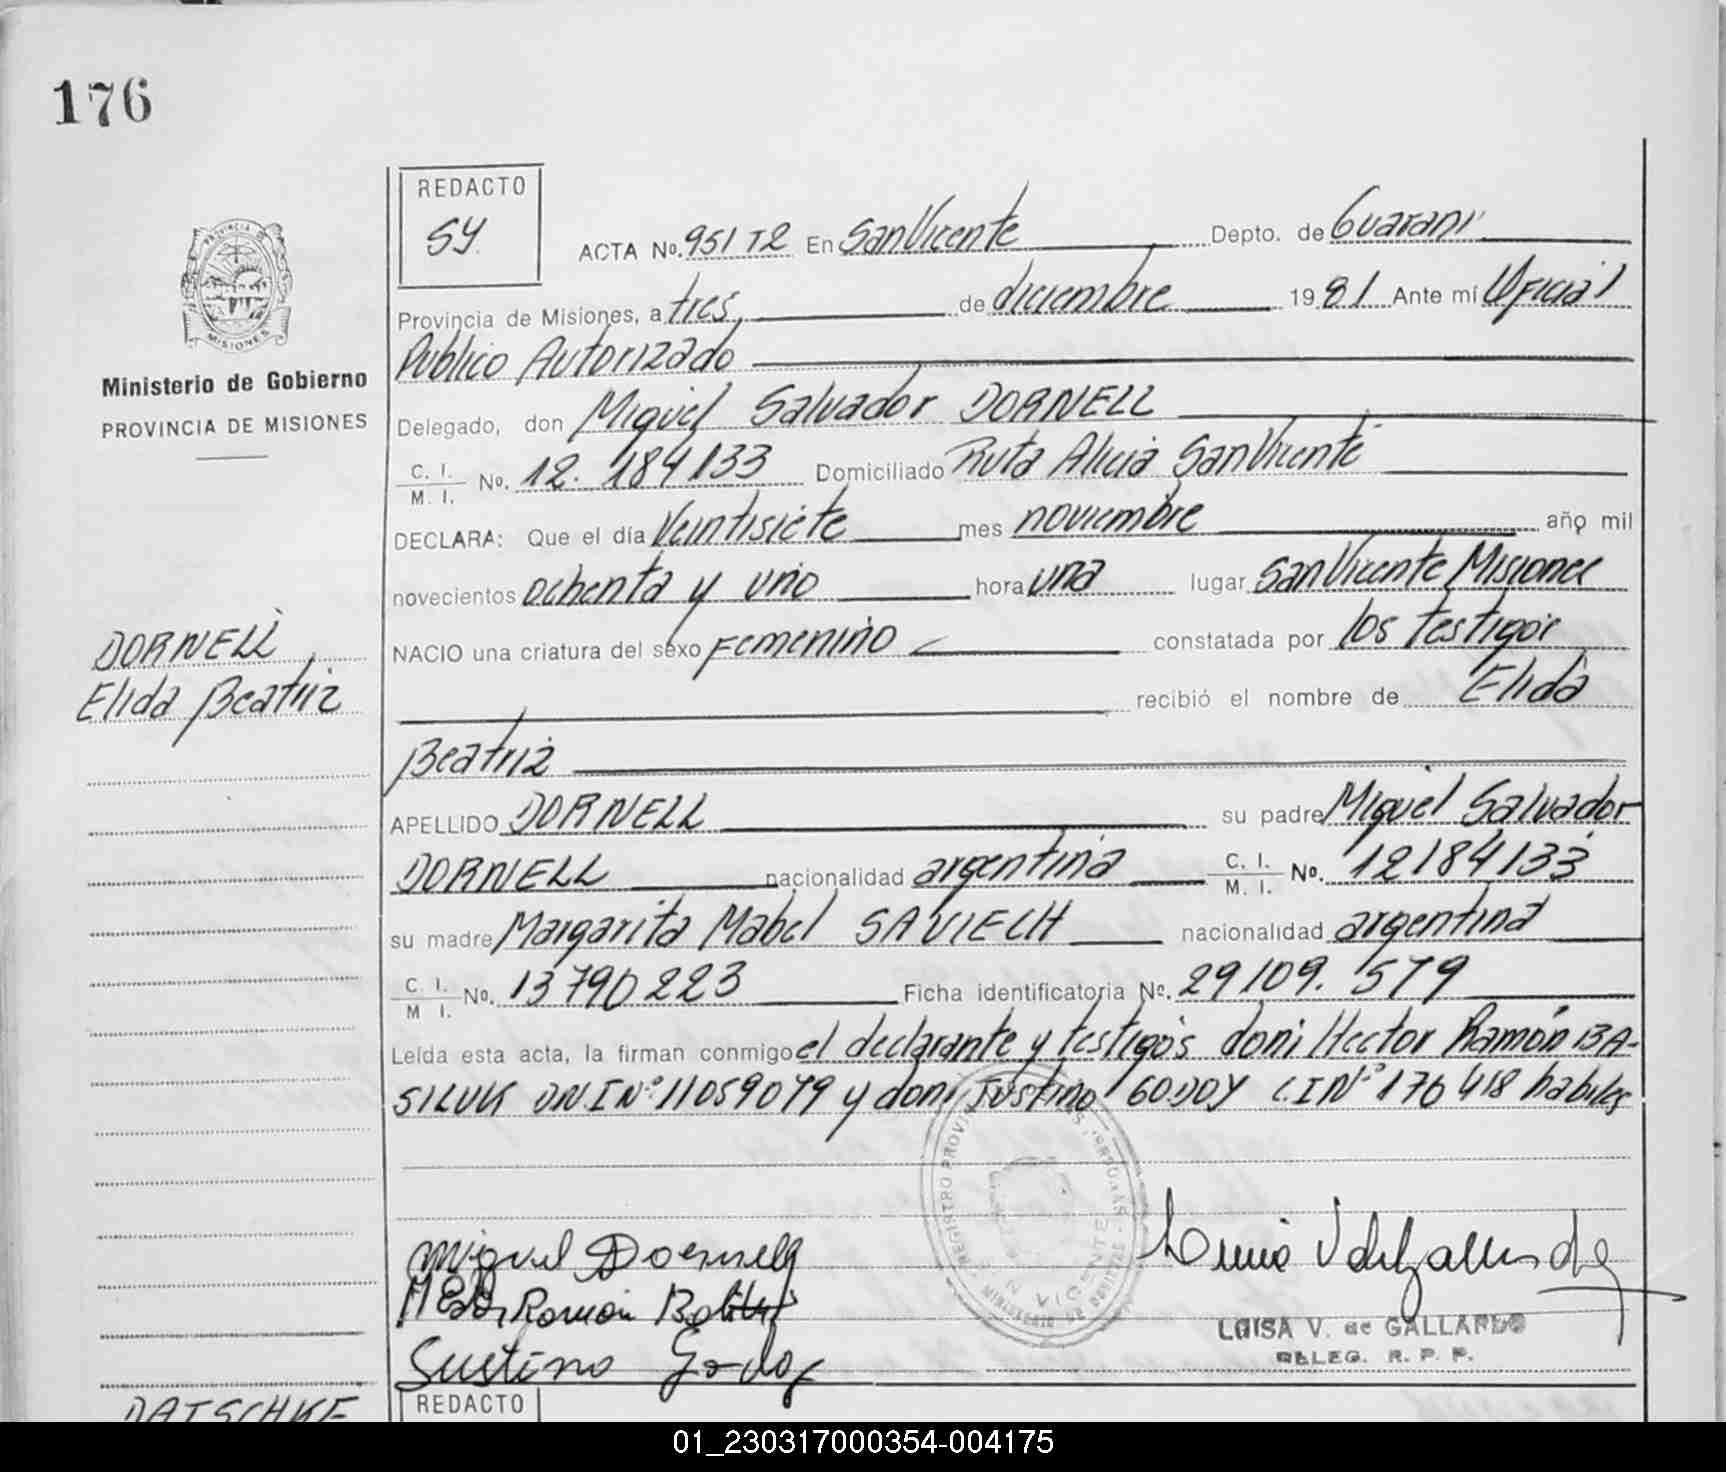 176
PROVINCIA DE MISIONES
Ministerio de Gobierno
PROVINCIA DE MISIONES
DORNELL
Elida Beatriz
REDACTO
SY.
ACTA No. 951 T2 En San Vicente Depto. de Guarani
Provincia de Misiones, a tres de diciembre 1981 Ante mí Oficial
Publico Autorizado
Delegado, don Miguel Salvador DORNELL
C. I. / M. I. No. 12.184133 Domiciliado Ruta Alicia San Vicente
DECLARA: Que el día Veintisiete mes noviembre año mil
novecientos ochenta y uno hora una lugar San Vicente Misiones
NACIO una criatura del sexo Femenino constatada por los testigos
recibió el nombre de Elida
Beatriz
APELLIDO DORNELL su padre Miguel Salvador
DORNELL nacionalidad argentina C. I. / M. I. No. 12184133
su madre Margarita Mabel SAVIECH nacionalidad argentina
C. I. / M I. No. 13790223 Ficha identificatoria No. 29109.579
Leída esta acta, la firman conmigo el declarante y testigos don: Hector Ramón BA-
SILUK DNI Nº 11059079 y don: Justino GODOY C.I Nº 176418 habiles
REGISTRO MINISTERIO DE VICENTE
Miguel Dornell
Ramon
Sustino Godoy
LUISA V. de GALLARDO
DELEG. R. P. P.
DATSCHKE
REDACTO
01_230317000354-004175